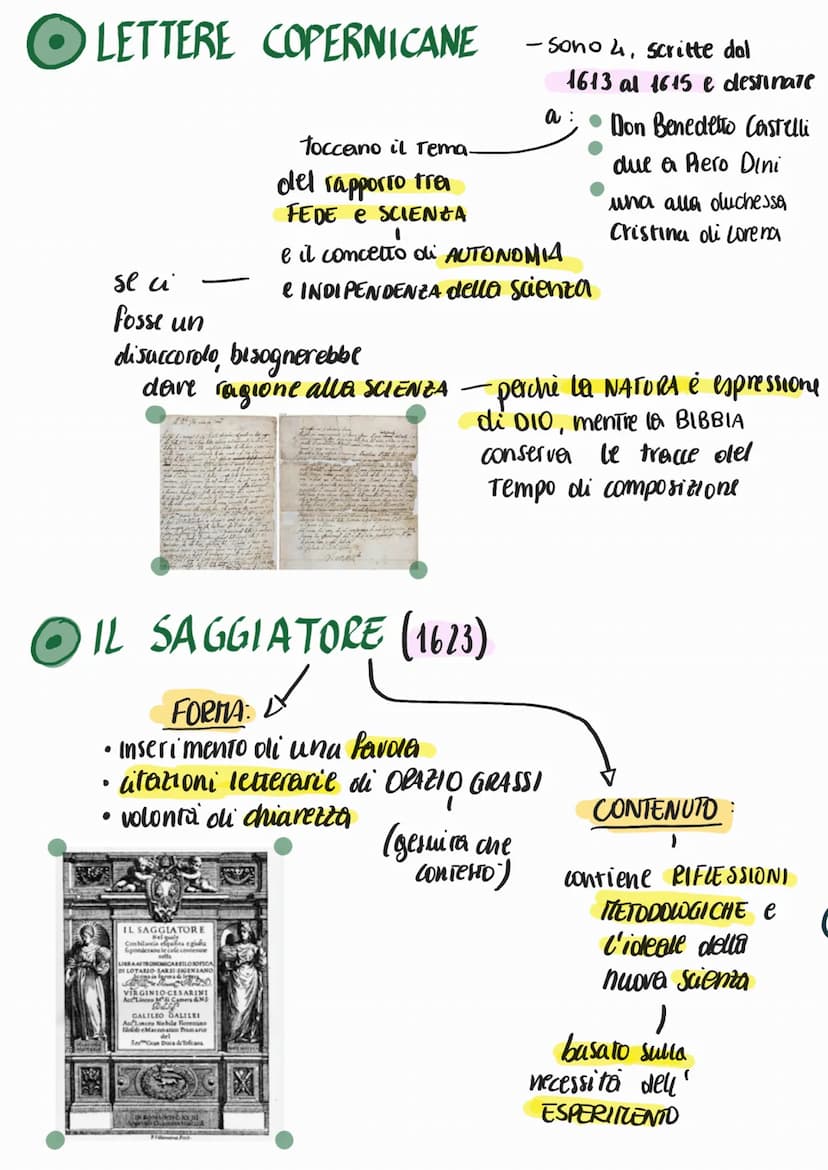 LETTERE COPERNICANE
- sono 4, scritte dal
1613 al 1615 e destinate
a:
Don Benedetto Castelli
due a Piero Dini
una alla duchessa
Cristina di Lorena
toccano il tema
del rapporto tra
FEDE e SCIENZA
e il concetto di AUTONOMIA
e INDIPENDENZA della scienza
se ci
fosse un
disaccordo, bisognerebbe
dare ragione alla SCIENZA — perchè la NATURA è espressione
di DIO, mentre la BIBBIA
conserva le tracce del
tempo di composizione
IL SAGGIATORE (1623)
FORMA:
• inserimento di una favola
• citazioni letterarie di ORAZIO GRASSI
• volontà di chiarezza
(gesuita che
contestò)
CONTENUTO:
contiene RIFLESSIONI
METODOLOGICHE e
l'ideale della
nuova scienza
basato sulla
necessità dell'
ESPERIMENTO
IL SAGGIATORE
Nel quale
Con bilancia esquisita e giusta
si ponderano le cose contenute
nella
LIBRA ASTRONOMICA E FILOSOFICA
DI LOTARIO SARSI SIGENSANO
Scritto in forma di lettera
VIRGINIO CESARINI
GALILEO GALILEI